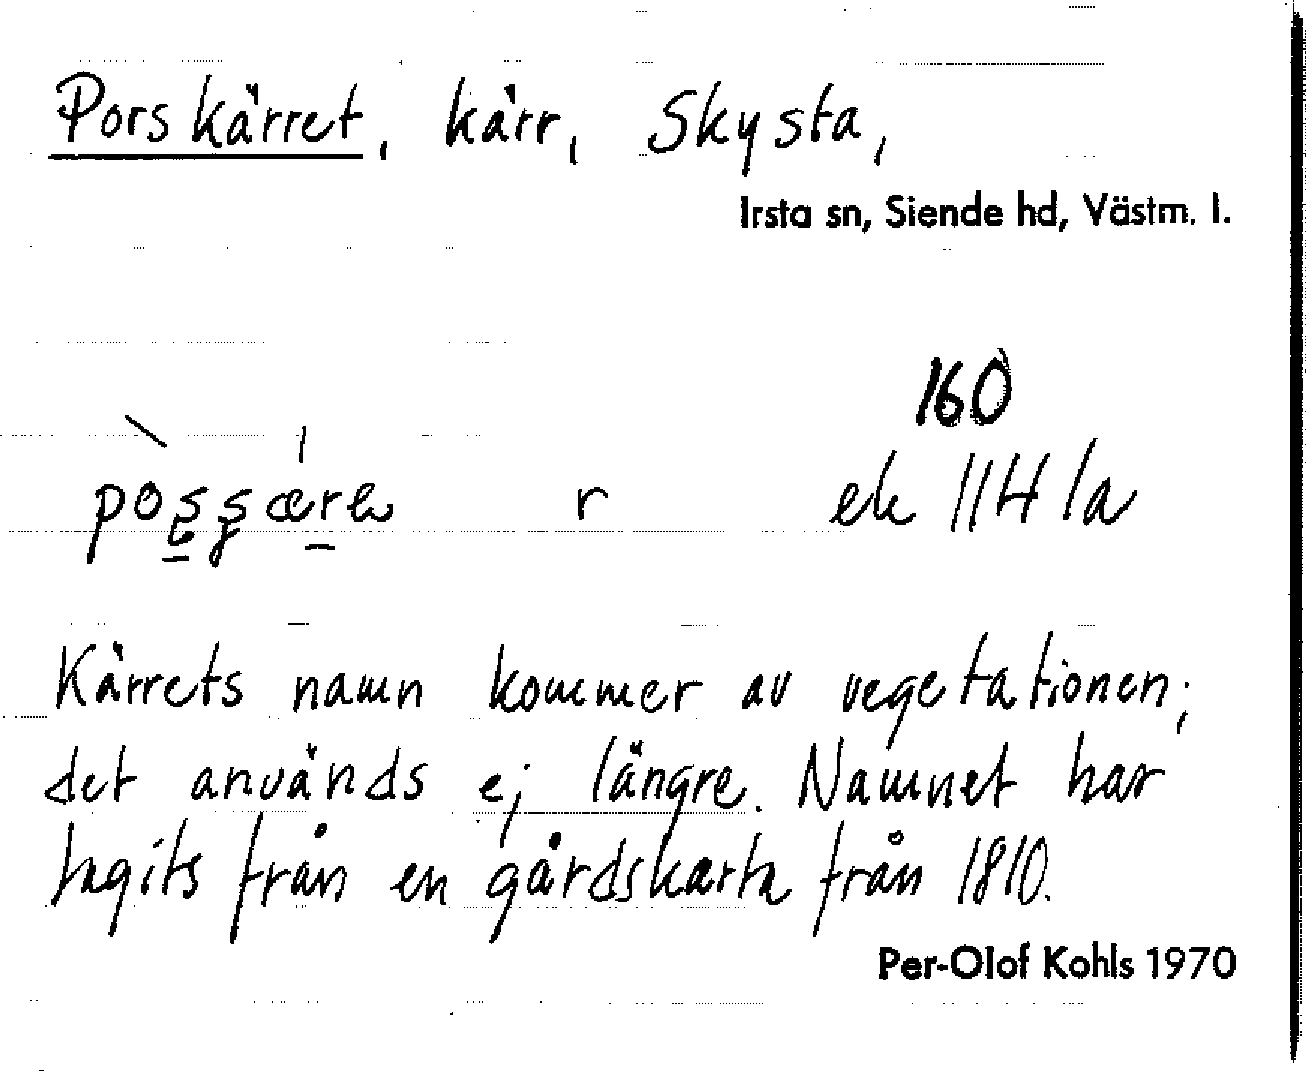 Porskärret, kärr, Skysta,
Irsta sn, Siende hd, Västm. l.
160
r ek 11H 1a
Kärrets namn kommer av vegetationen;
det används ej längre. Namnet har
tagits från en gårdskarta från 1810.
Per-Olof Kohls 1970